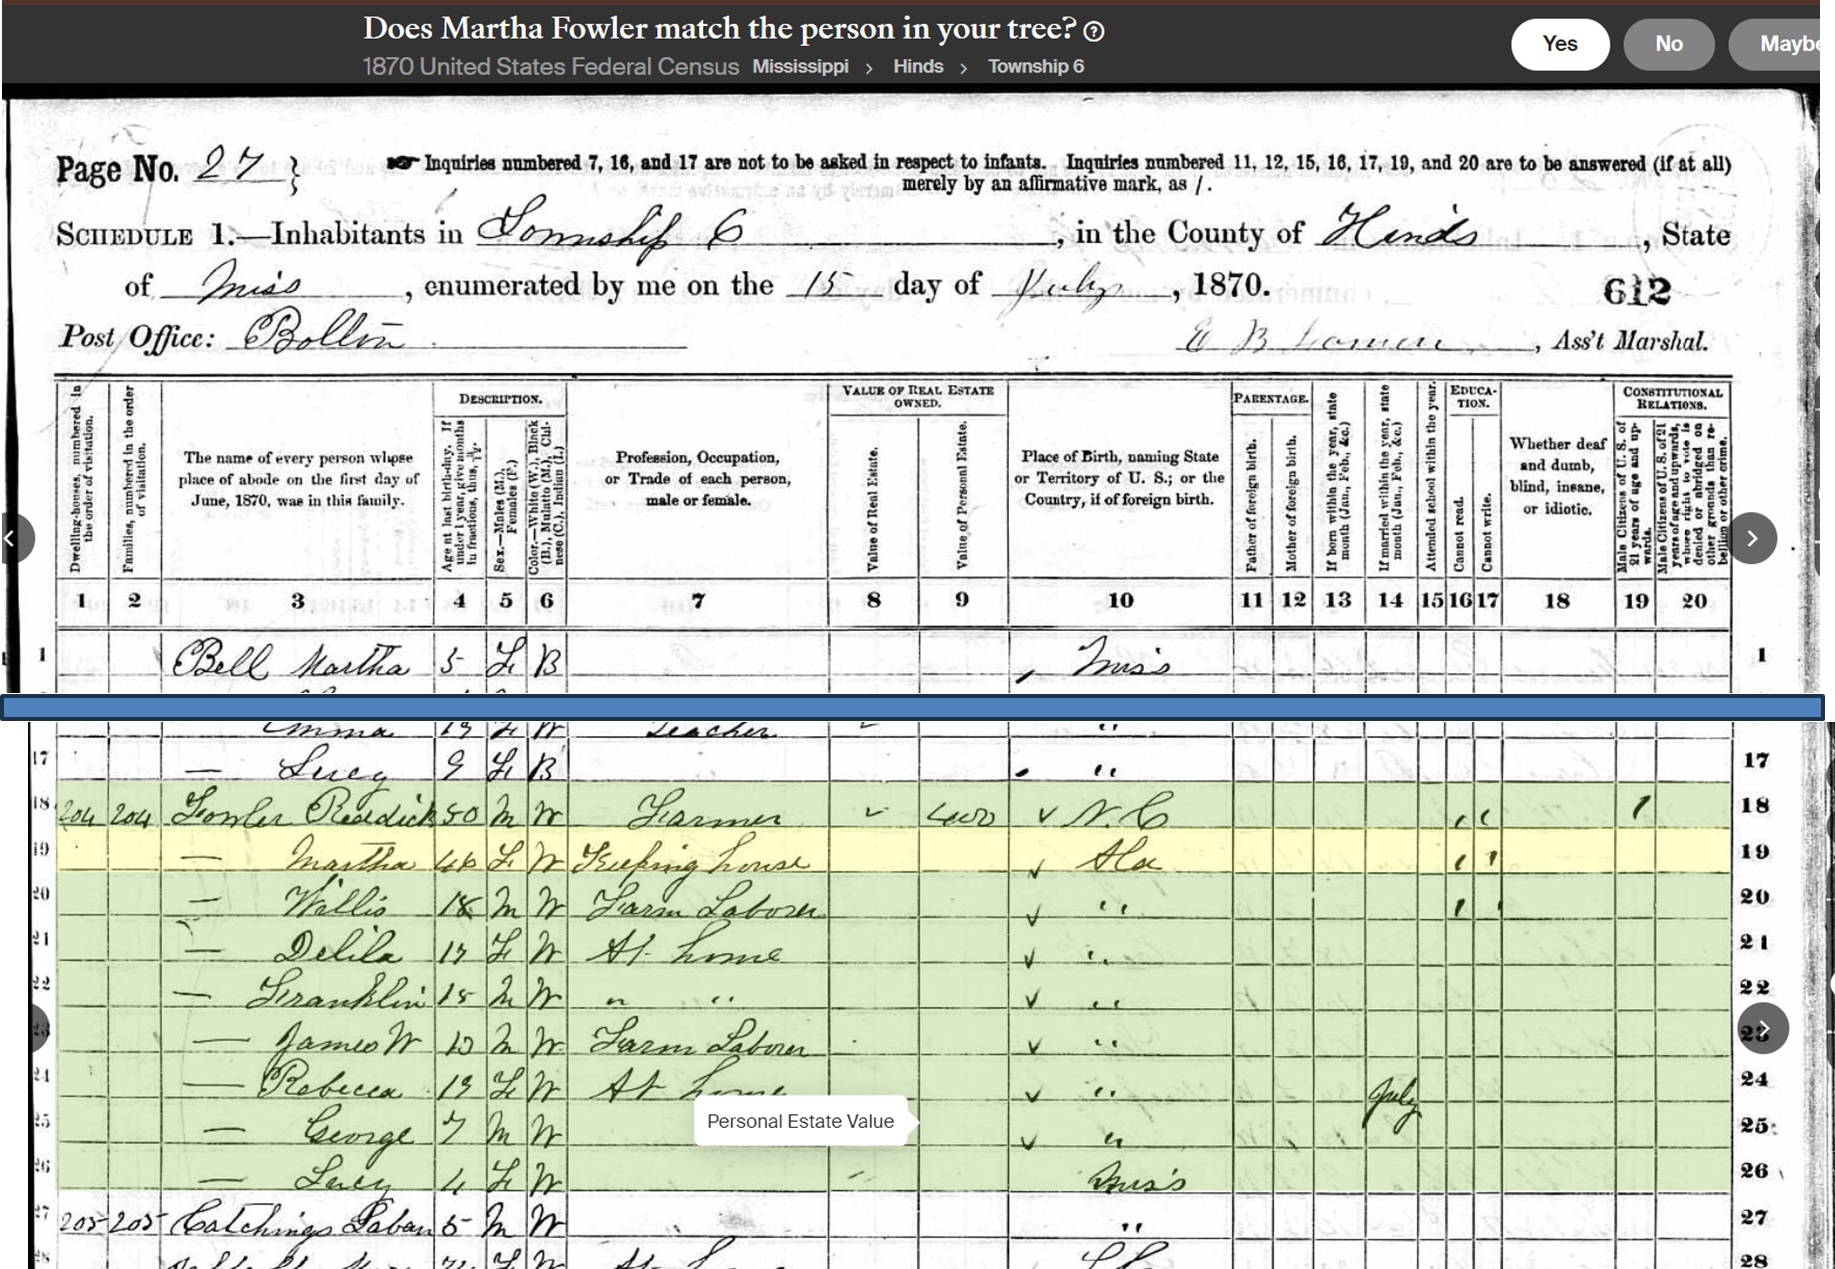 Does Martha Fowler match the person in your tree? ?
Yes
No
Maybe
1870 United States Federal Census Mississippi > Hinds > Township 6
Page No. 27
Inquiries numbered 7, 16, and 17 are not to be asked in respect to infants. Inquiries numbered 11, 12, 15, 16, 17, 19, and 20 are to be answered (if at all)
merely by an affirmative mark, as /.
SCHEDULE 1.—Inhabitants in Township 6, in the County of Hinds, State
of Miss, enumerated by me on the 15 day of July, 1870.
612
Post Office: Bolton
E B, Ass't Marshal.
Dwelling-houses, numbered in the order of visitation.
Families, numbered in the order of visitation.
The name of every person whose place of abode on the first day of June, 1870, was in this family.
DESCRIPTION.
Age at last birth-day. If under 1 year, give months in fractions, thus,
Sex.—Males (M.), Females (F.)
Color.—White (W.), Black (B.), Mulatto (M.), Chinese (C.), Indian (I.)
Profession, Occupation, or Trade of each person, male or female.
VALUE OF REAL ESTATE OWNED.
Value of Real Estate.
Value of Personal Estate.
Place of Birth, naming State or Territory of U. S.; or the Country, if of foreign birth.
PARENTAGE.
Father of foreign birth.
Mother of foreign birth.
If born within the year, state month (Jan., Feb., &c.)
If married within the year, state month (Jan., Feb., &c.)
Attended school within the year.
EDUCATION.
Cannot read.
Cannot write.
Whether deaf and dumb, blind, insane, or idiotic.
CONSTITUTIONAL RELATIONS.
Male Citizens of U.S. of 21 years of age and upwards.
Male Citizens of U.S. of 21 years of age and upwards, whose right to vote is denied or abridged on other grounds than rebellion or other crime.
1 2 3 4 5 6 7 8 9 10 11 12 13 14 15 16 17 18 19 20
1 Bell Martha 5 F B Miss 1
Emma 19 F W Teacher "
17 — Lucy 9 F B " 17
18 204 204 Fowler Reddick 50 M W Farmer 400 N. C 18
19 — Martha 46 F W Keeping house Ala 19
20 — Willis 18 M W Farm Laborer " 20
21 — Delila 17 F W At home " 21
22 — Franklin 15 M W " " " 22
23 — James W 13 M W Farm Laborer " 23
24 — Rebecca 19 F W At home " July 24
25 — George 7 M W " 25
Personal Estate Value
26 — Lucy 4 F W Miss 26
27 205 205 Catchings Laban 5 M W " 27
28 28